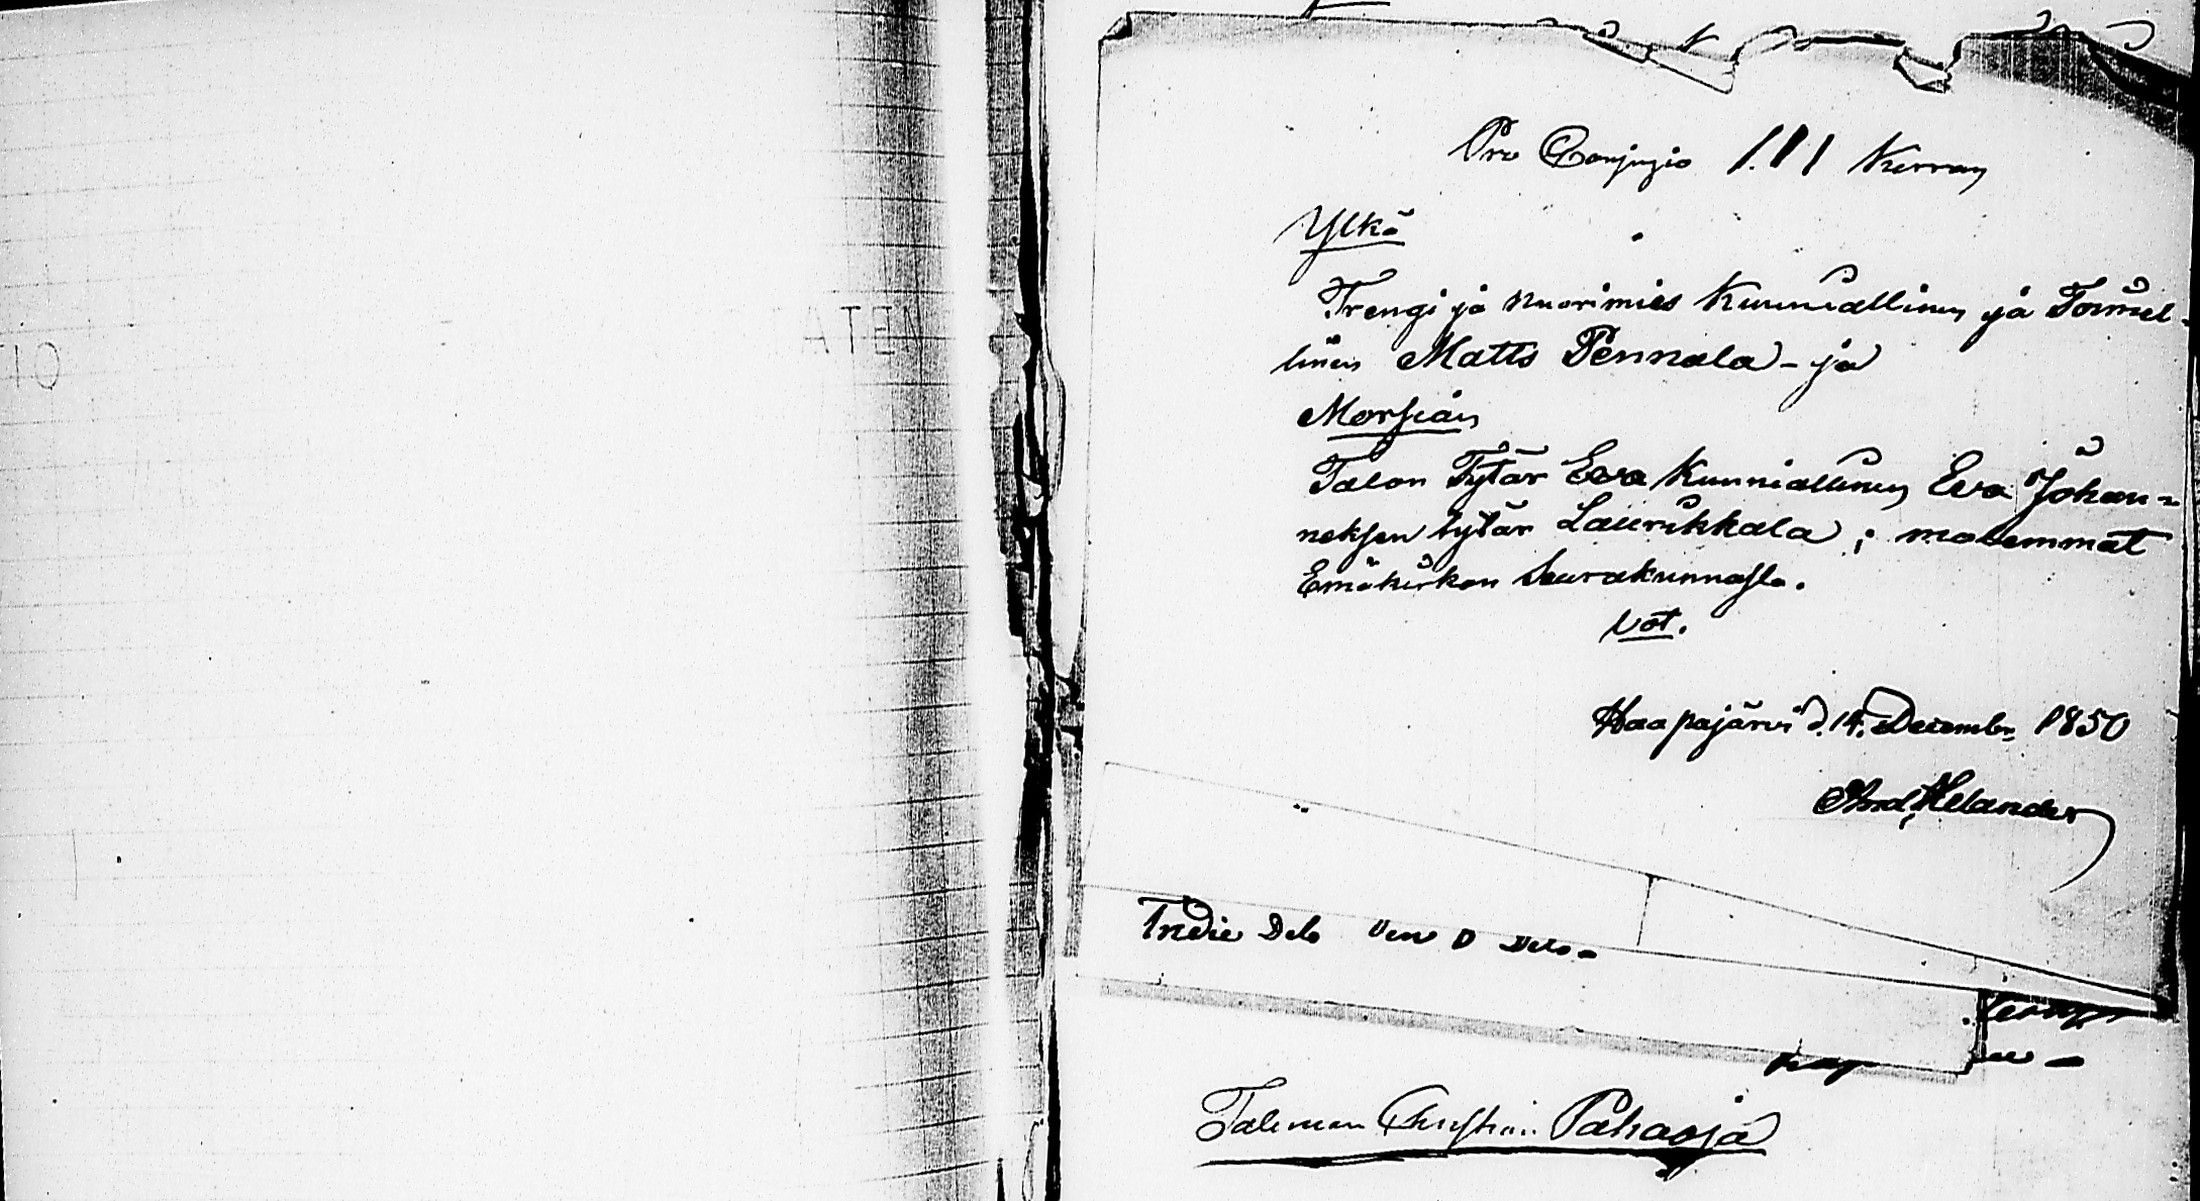 Pro Conjugio 1.11 Kerran
Ylkä
Trengi ja nuorimies Kunniallinen ja Toimel-
linen Matts Pennala - ja
Morsian
Talon Tytär Eva Kunniallinen Eva Johan-
neksen tytär Laurikkala; molemmat
Emäkirkon Seurakunnasta.
Vot.
Haapajärvi d. 14. Decembr. 1850
And. Helander
Tredie Dels
Taleman Christian Pahaoja